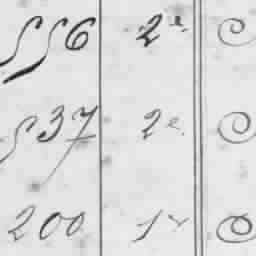 556 2e
537 2e
200 1r